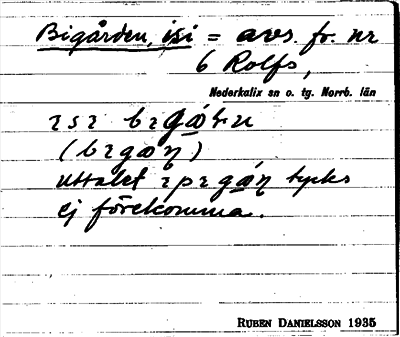 Bigården, isi = avs. fr. nr
6 Rolfs,
Nederkalix sn o. tg. Norrb. län
ɿsɿ bɿgǻɳ
(bɿgaɳ)
uttalet ɿpɿgáɳ tycks
ej förekomma.
RUBEN DANIELSSON 1935